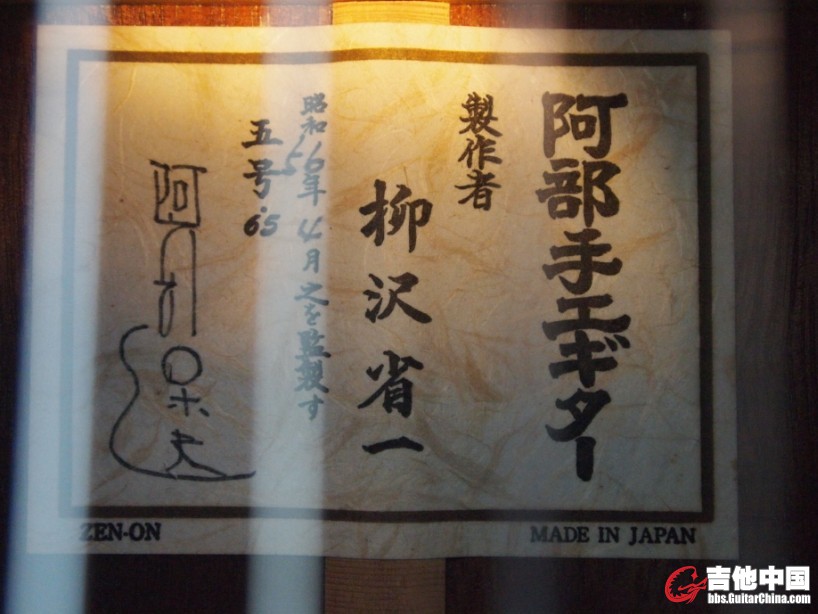 阿部手工ギター
製作者
柳沢省一
昭和56年4月之を監製す
五号.65
ZEN-ON
MADE IN JAPAN
吉他中国
bbs.GuitarChina.com